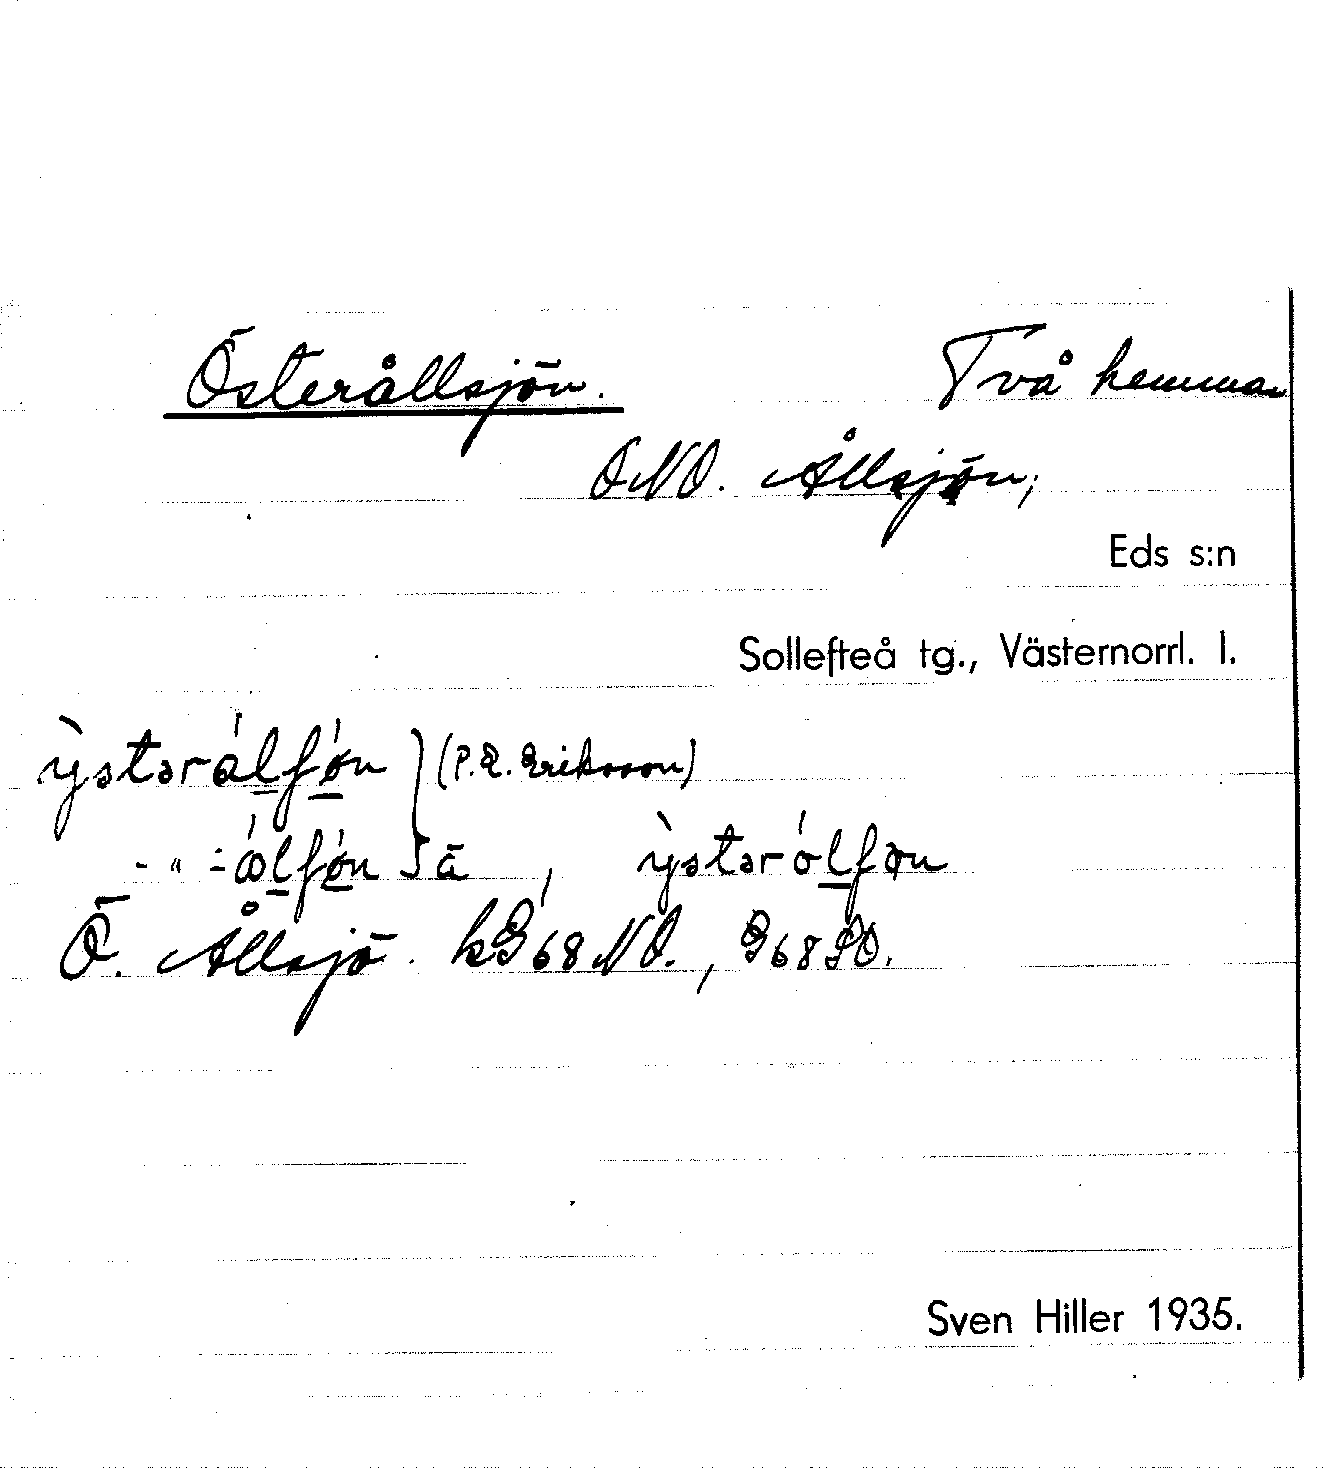 Österållsjön. Två hemman
ONO. Ållsjön,
Eds s:n
Sollefteå tg., Västernorrl. l.
ỳstərólfǿn } (P.E. Eriksson)
-"- ólfǿn } ä , ỳstərólføn
Ö. Ållsjö. kG68NO., G68SO.
Sven Hiller 1935.